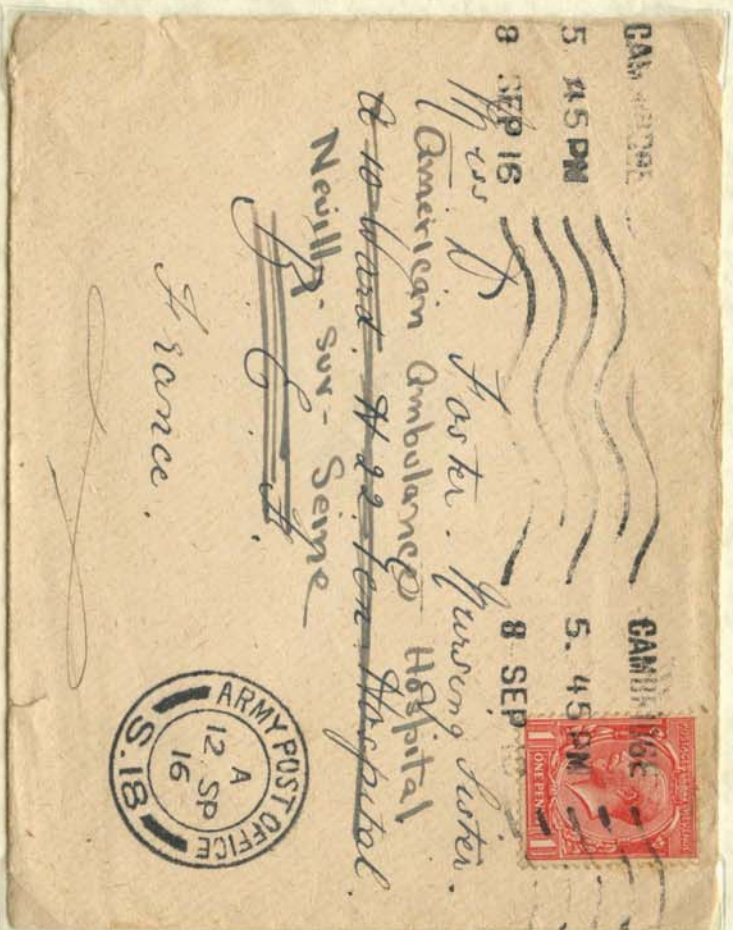 CAMBRIDGE
5. 45 PM
8 SEP 16
CAMBRIDGE
5. 45 PM
8 SEP
ONE PENNY
1 1
Miss D Foster. Nursing Sister.
American Ambulance Hospital
A 10 Ward. N 22 Gen Hospital.
Neuilly-sur-Seine
B. E. F.
France.
ARMY POST OFFICE
A
12 SP
16
S.18